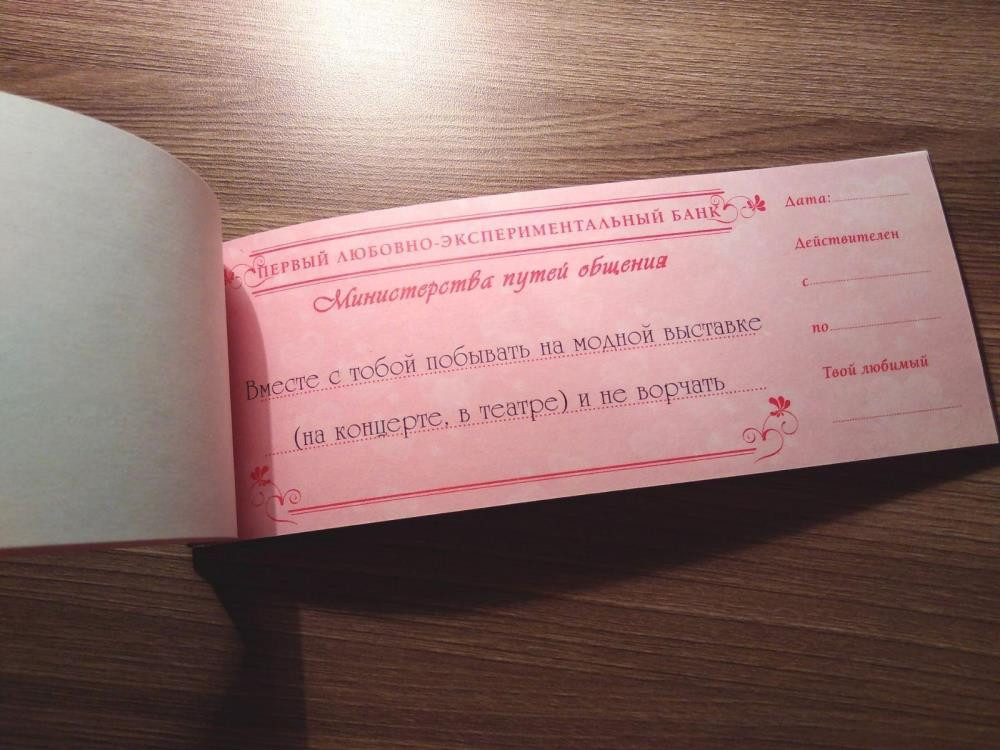 ПЕРВЫЙ ЛЮБОВНО-ЭКСПЕРИМЕНТАЛЬНЫЙ БАНК
Министерства путей общения
Вместе с тобой побывать на модной выставке
(на концерте, в театре) и не ворчать
Дата:
Действителен
с
по
Твой любимый